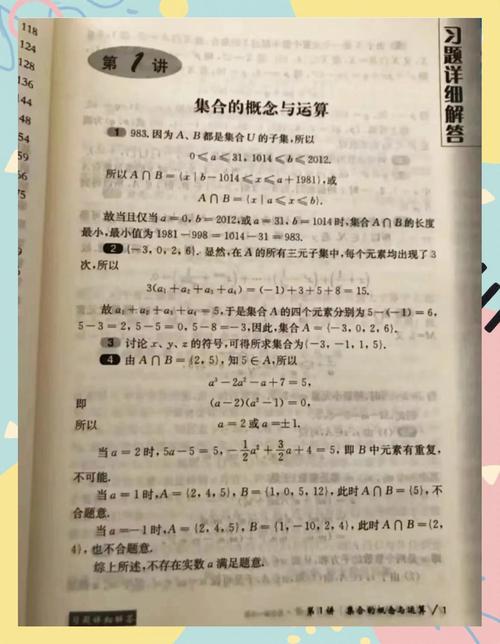 118
124
128
136
144
48
54
59
66
75
习题详细解答
第1讲
集合的概念与运算
1 983. 因为 A、B 都是集合 U 的子集,所以
0⩽a⩽31, 1014⩽b⩽2012.
所以 A∩B={x|b-1014⩽x⩽a+1981},或
A∩B={x|a⩽x⩽b}.
故当且仅当 a=0, b=2012,或 a=31, b=1014 时,集合 A∩B 的长度
最小,最小值为 1981-998=1014-31=983.
2 {-3, 0, 2, 6}. 显然,在 A 的所有三元子集中,每个元素均出现了 3
次,所以
3(a₁+a₂+a₃+a₄)=(-1)+3+5+8=15.
故 a₁+a₂+a₃+a₄=5,于是集合 A 的四个元素分别为 5-(-1)=6,
5-3=2, 5-5=0, 5-8=-3,因此,集合 A={-3, 0, 2, 6}.
3 讨论 x、y、z 的符号,可得所求集合为{-3, -1, 1, 5}.
4 由 A∩B={2, 5},知 5∈A,所以
a³-2a²-a+7=5,
即 (a-2)(a²-1)=0,
所以 a=2 或 a=±1.
当 a=2 时, 5a-5=5, -1/2a²+3/2a+4=5,即 B 中元素有重复,
不可能.
当 a=1 时, A={2, 4, 5}, B={1, 0, 5, 12},此时 A∩B={5},不
合题意.
当 a=-1 时, A={2, 4, 5}, B={1, -10, 2, 4},此时 A∩B={2,
4},也不合题意.
综上所述,不存在实数 a 满足题意.
第1讲 集合的概念与运算 / 1